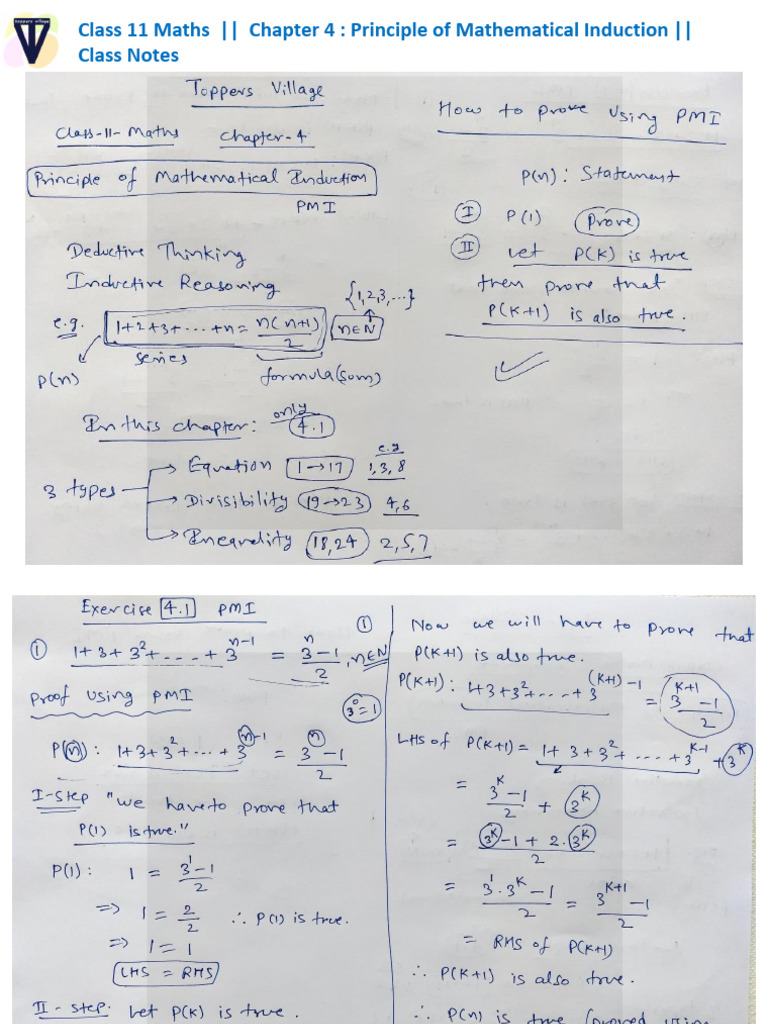 toppers village
Class 11 Maths || Chapter 4 : Principle of Mathematical Induction ||
Class Notes
Toppers Village
Class-11-Maths Chapter-4
Principle of Mathematical Induction
PMI
Deductive Thinking
Inductive Reasoning
{1,2,3,...}
e.g. 1+2+3+...+n = n(n+1)/2 n∈N
series
P(n) formula(sum)
In this chapter: only 4.1
3 types
e.g
Equation 1→17 1,3,8
Divisibility 19→23 4,6
Inequality 18,24 2,5,7
How to prove using PMI
P(n): Statement
I P(1) Prove
II Let P(K) is true
then prove that
P(K+1) is also true.
Exercise 4.1 PMI
① 1+3+3²+....+3ⁿ⁻¹ = (3ⁿ-1)/2, n∈N
Proof using PMI
3⁰=1
P(n): 1+3+3²+...+3ⁿ⁻¹ = (3ⁿ-1)/2
I-Step "We have to prove that
P(1) is true."
P(1): 1 = (3¹-1)/2
=> 1 = 2/2 ∴ P(1) is true.
=> 1 = 1
LHS = RHS
II-step: Let P(K) is true.
①
Now we will have to prove that
P(K+1) is also true.
P(K+1): 1+3+3²+...+3⁽ᴷ⁺¹⁾⁻¹ = (3ᴷ⁺¹-1)/2
LHS of P(K+1) = 1+3+3²+....+3ᴷ⁻¹+3ᴷ
= (3ᴷ-1)/2 + 3ᴷ
= (3ᴷ-1+2.3ᴷ)/2
= (3¹.3ᴷ-1)/2 = (3ᴷ⁺¹-1)/2
= RHS of P(K+1)
∴ P(K+1) is also true.
∴ P(n) is true (proved using